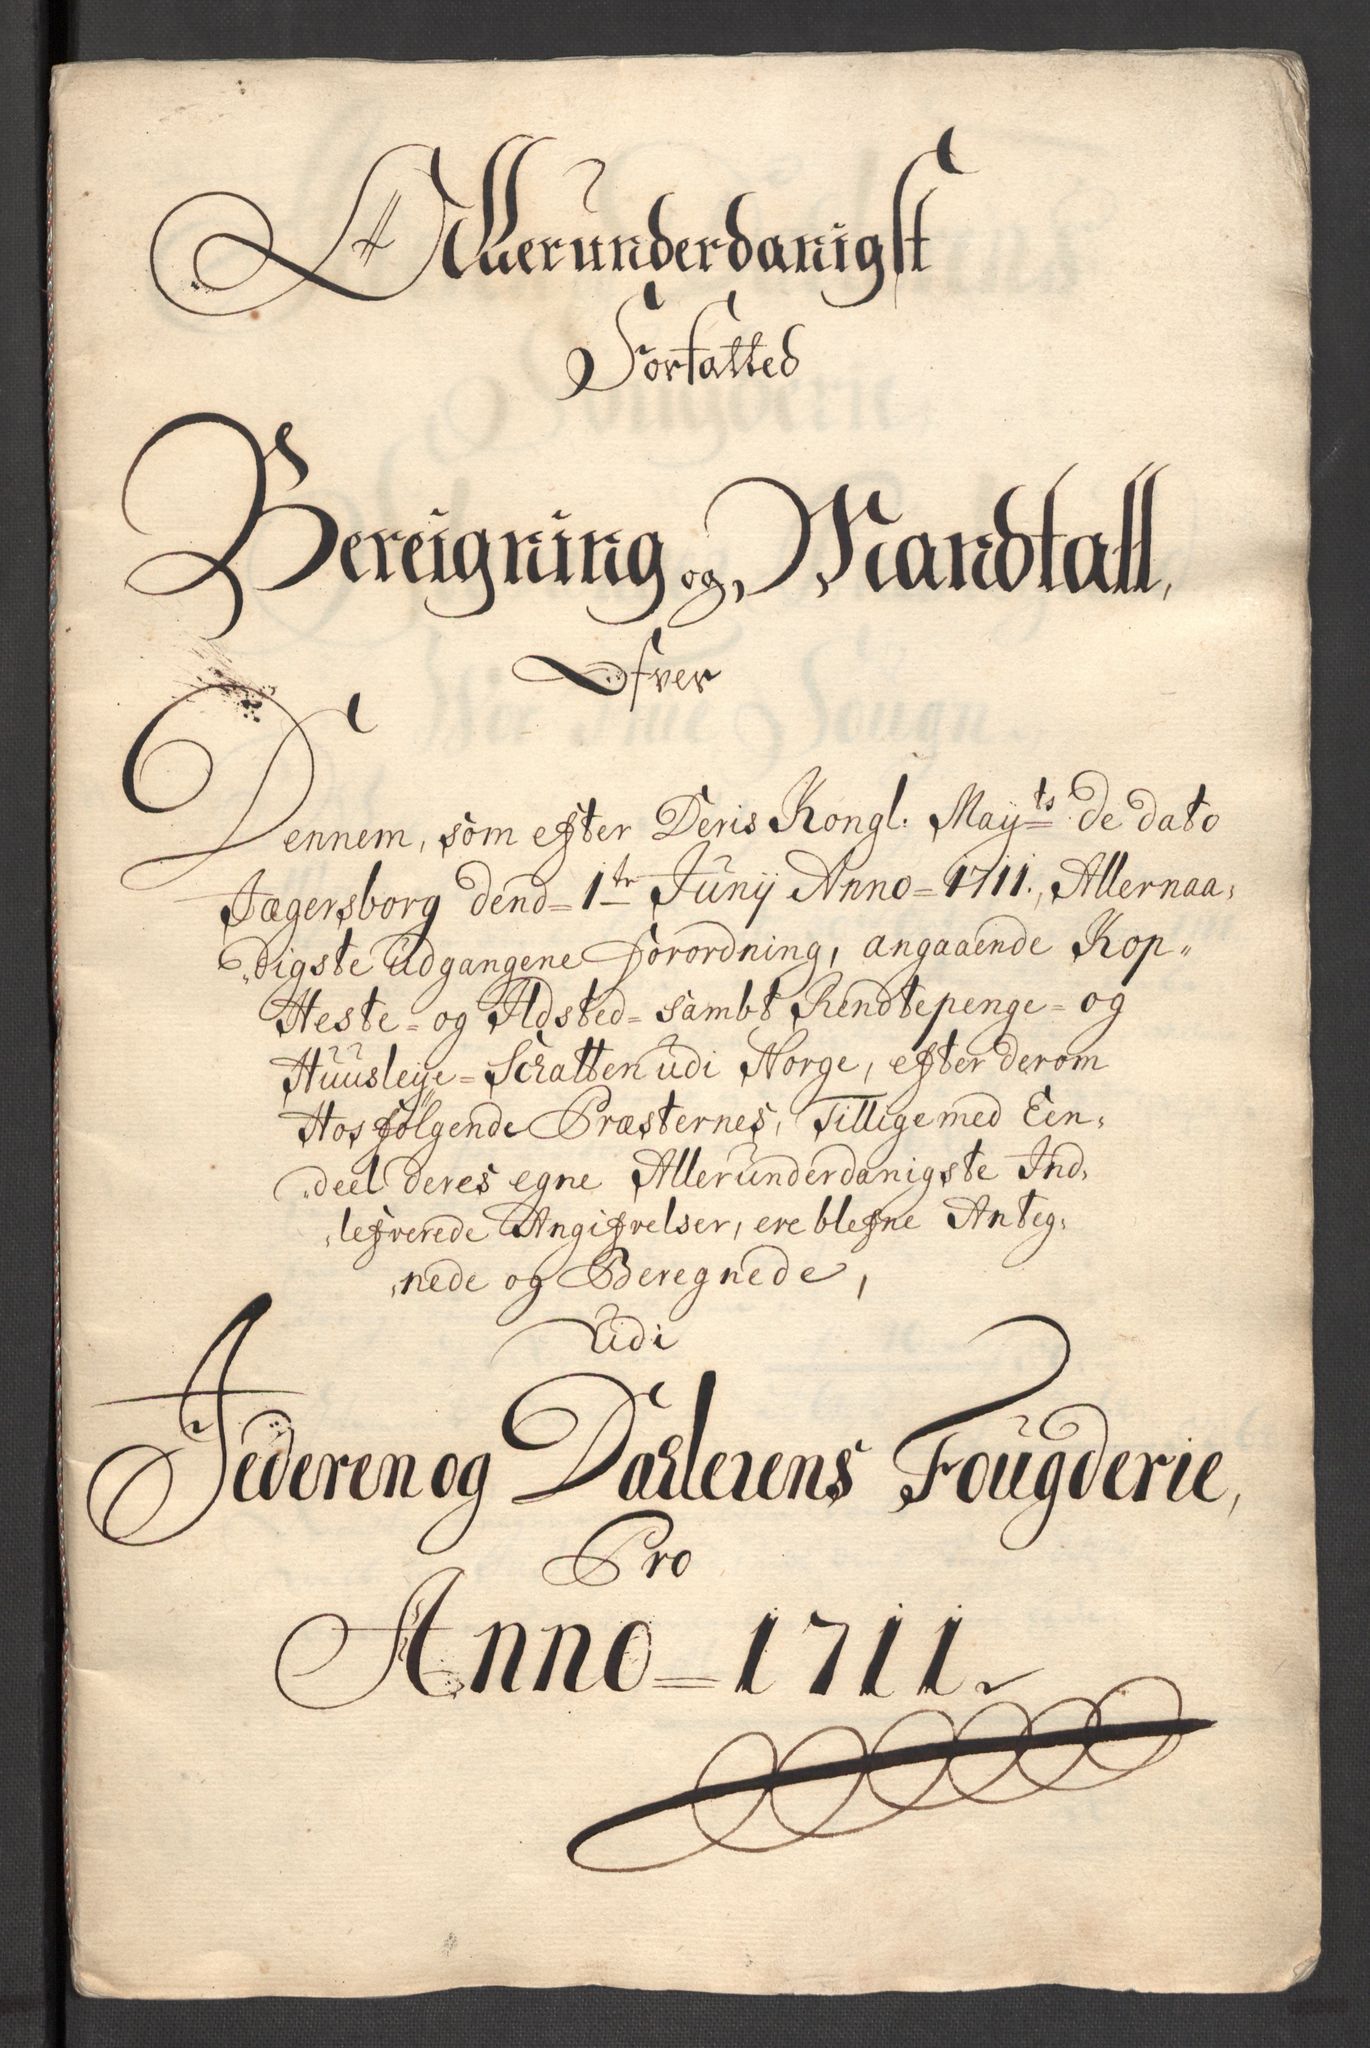 Allerunderdanigst
Forfatted
Bereigning og Mandtall,
Ofver
Dennem, som efter Deris Kongl: Mayts de dato
Jægersborg dend= 1te Junij Anno= 1711., Allernaa,
"digste udgangene Forordning, angaaende Kop"
Heste= og Ildsted= sambt Rendtepenge= og
Huusleye= Schatten udi Norge, efter derom
Hosfølgende Præsternes, Tillige med Een,
"deel deres egne Allerunderdanigste Ind,
"lefverede Angifvelser, ere blefne Anteg,
"nede og Beregnede,
Udi
Jederen og Dahlernens Fougderie,
Pro
Anno= 1711.